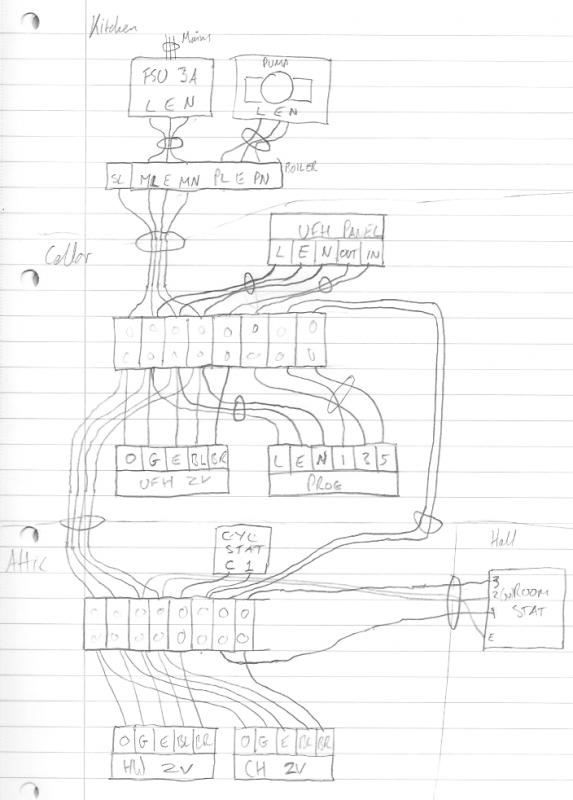 Kitchen
Mains
FSU 3A
L E N
PUMP
L E N
SL ML E MN PL E PN
BOILER
Cellar
UFH PANEL
L E N OUT IN
O G E BL BR
UFH 2V
L E N 1 3 5
PROG
Attic
CYL STAT
C 1
Hall
3
2
ROOM STAT
E
O G E BL BR
HW 2V
O G E BL BR
CH 2V